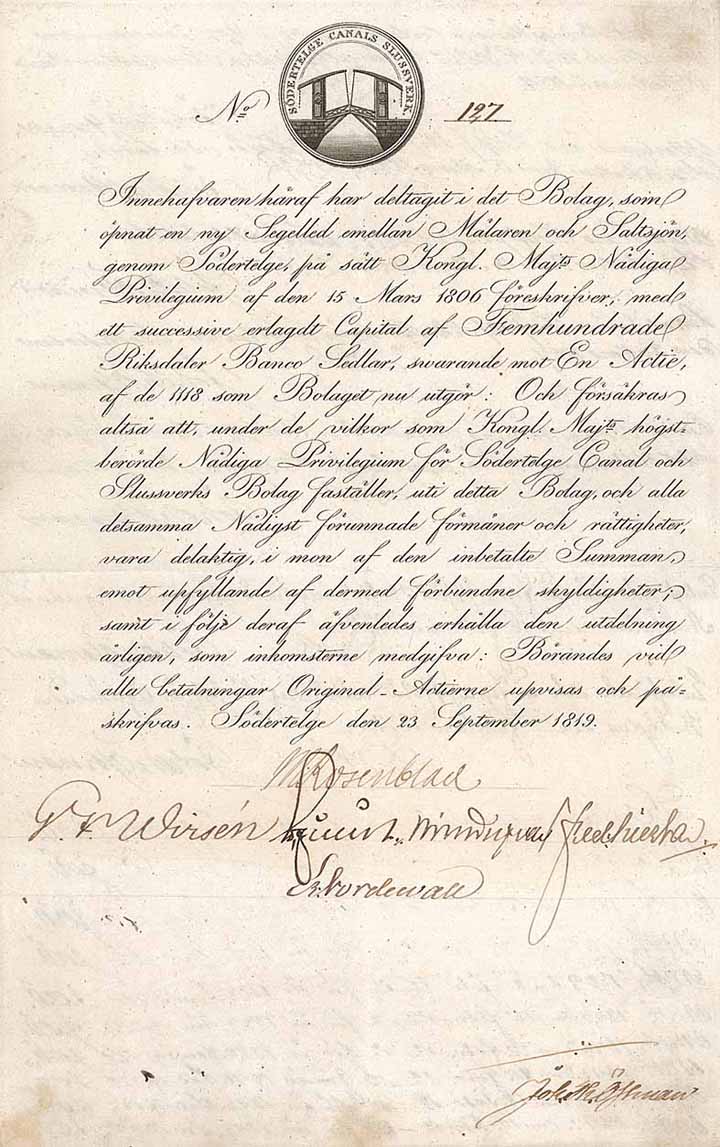 SÖDERTELGE CANALS SLUSSVERK.
No 127
Innehafvaren häraf har deltagit i det Bolag, som
öpnat en ny Segelled emellan Mälaren och Saltsjön,
genom Södertelge, på sätt Kongl. Majts Nådiga
Privilegium af den 15 Mars 1806 föreskrifver, med
ett successive erlagdt Capital af Femhundrade
Riksdaler Banco Sedlar, swarande mot En Actie,
af de 1118 som Bolaget nu utgör: Och försäkras
altså att, under de vilkor som Kongl. Majts högst-
berörde Nådiga Privilegium för Södertelge Canal och
Slussverks Bolag faställer, uti detta Bolag, och alla
detsamma Nådigst förunnade förmåner och rättigheter,
vara delaktig, i mon af den inbetalte Summan,
emot upfyllande af dermed förbundne skyldigheter;
samt i följe deraf äfvenledes erhålla den utdelning
årligen, som inkomsterne medgifva: Börandes vid
alla betalningar Original-Actierne upvisas och på-
skrifvas. Södertelge den 23 September 1819.
M. Rosenblad
G. F. Wirsén